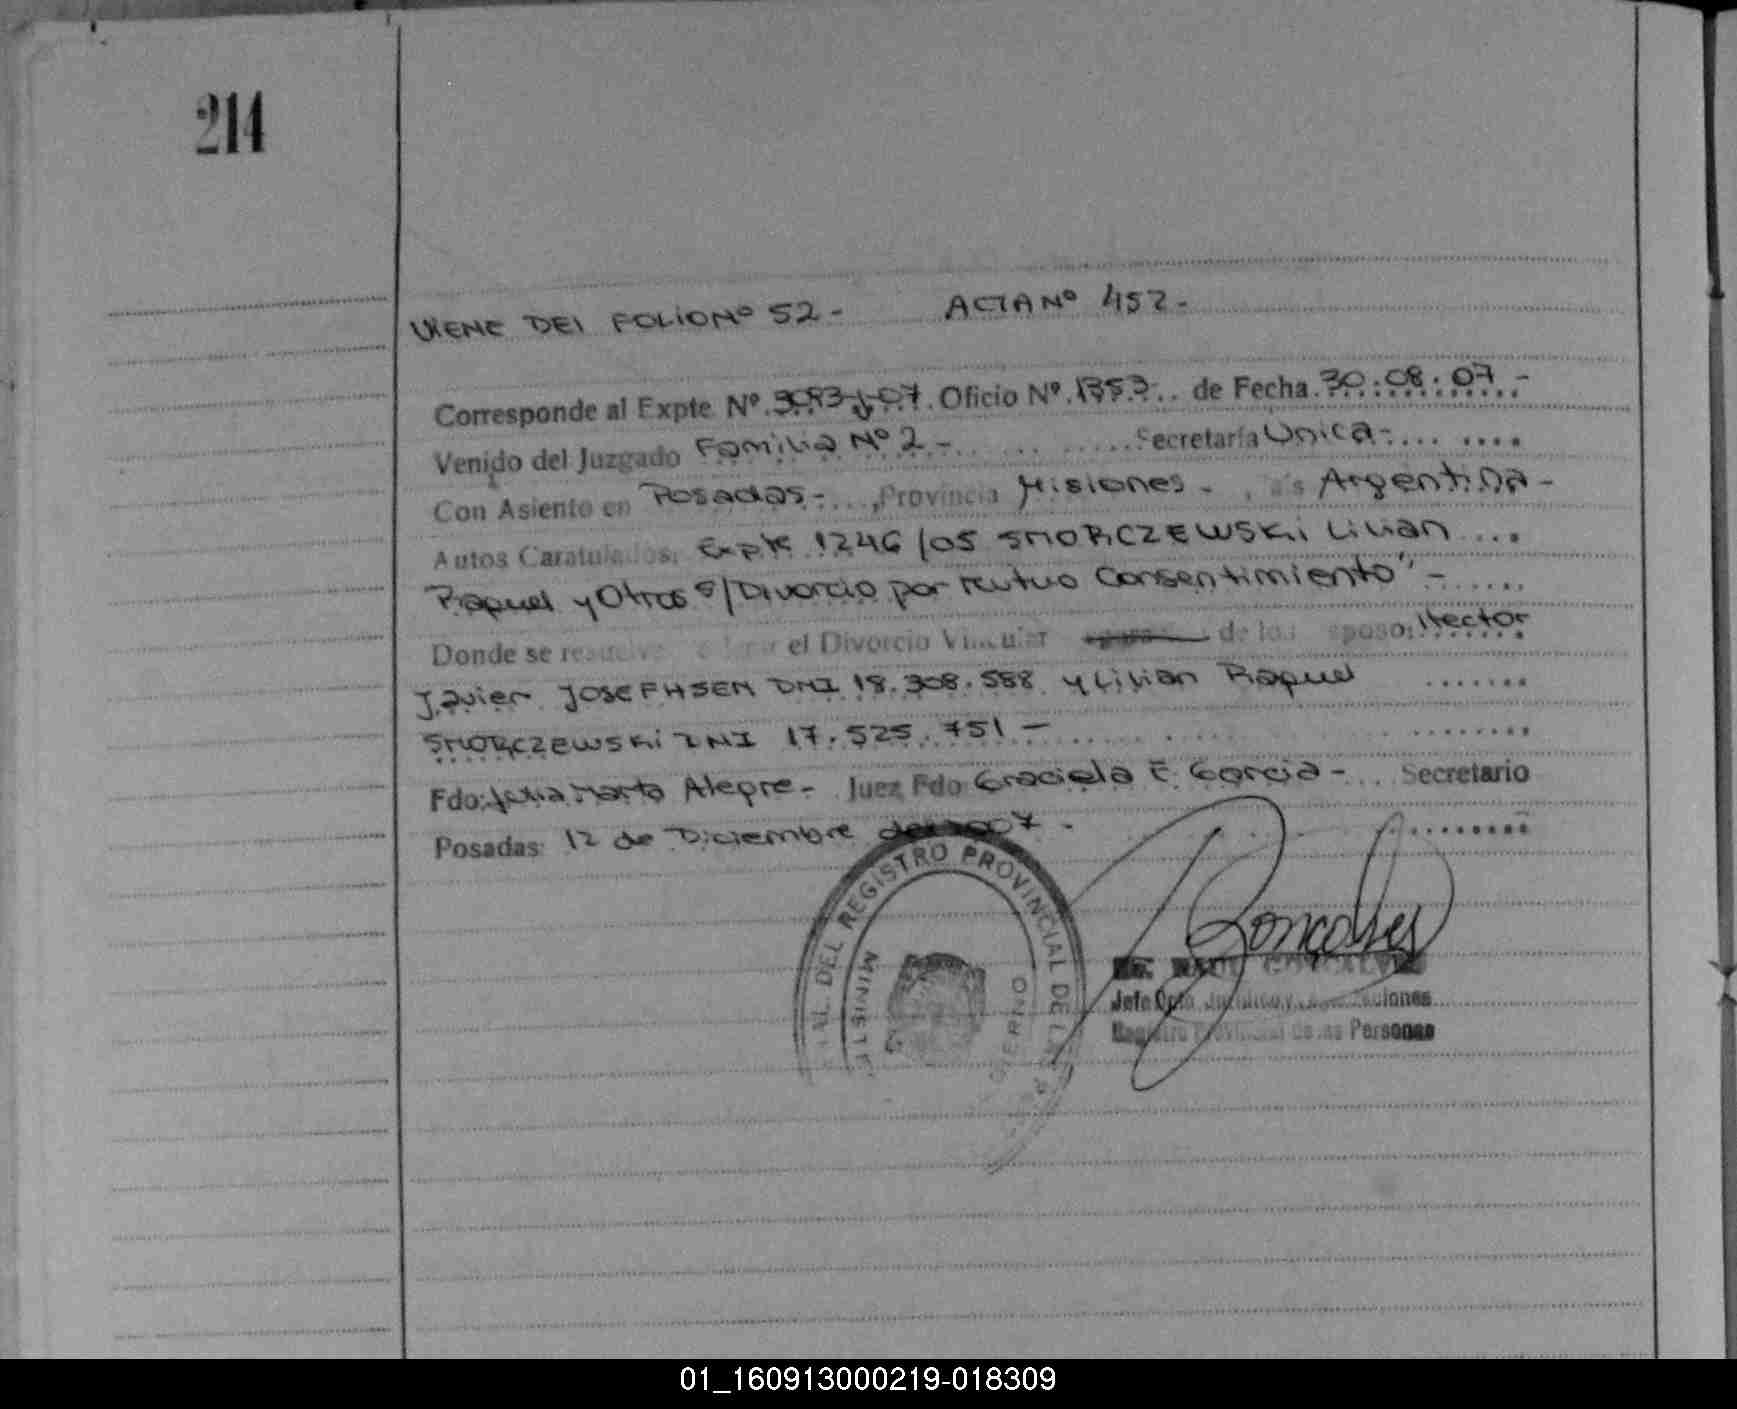 214
VIENE DEL FOLIO Nº 52 - ACTA Nº 452 -
Corresponde al Expte Nº 3093-J-07. Oficio Nº 1353. de Fecha 30.08.07 -
Venido del Juzgado Familia Nº 2 - Secretaría Unica -
Con Asiento en Posadas - , Provincia Misiones - , Argentina -
Autos Caratulados: Expte 1246/05 SMORCZEWSKI Lilian
Raquel y Otros s/Divorcio por mutuo Consentimiento" -
Donde se resuelve el Divorcio Vincular de los esposos: Hector
Javier JOSEFHSEN DNI 18.308.588 y Lilian Raquel
SMORCZEWSKI DNI 17.525.751 -
Fdo: Julia Marta Alegre - Juez Fdo Graciela E Garcia - Secretario
Posadas 12 de Diciembre del 2007 -
DEL REGISTRO PROVINCIAL DE L
MINIST
Goncalves
RAUL GONCALVES
Jefe Dpto. Jurídico y
Registro Provincial de las Personas
01_160913000219-018309